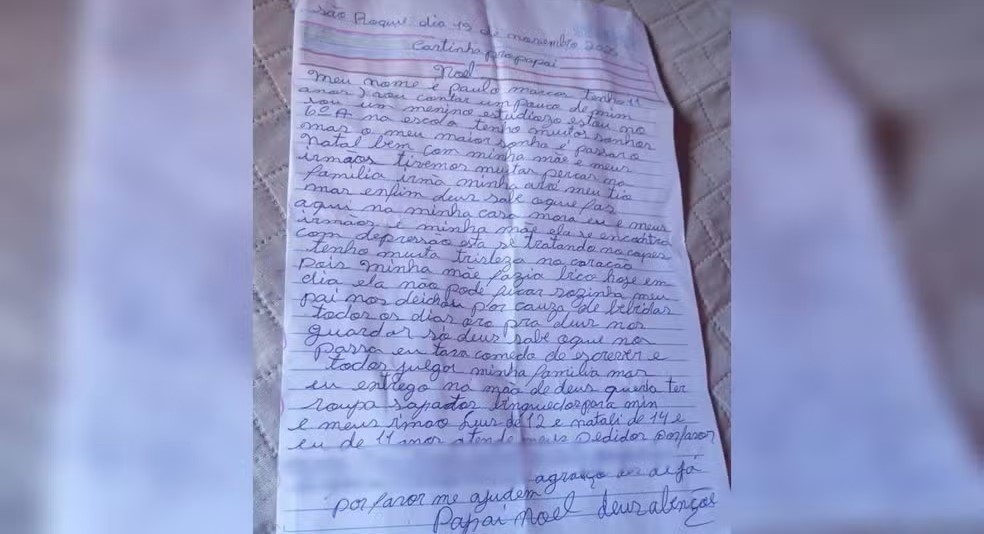 são Roque dia 19 de novembro
Cartinha pro papai
Noel
Meu nome é paulo marcos tenho 11
anos) vou contar um pouco de mim
sou um menino estudiozo estou no
6º A na escola tenho muitos sonhos
mas o meu maior sonho é passar o
natal bem com minha mãe e meus
irmãos tivemos muitas percas na
família irmã minha avó meu tio
mas enfim deus sabe oque faz
aqui na minha casa mora eu e meus
irmãos e minha mãe ela se encontra
com depressão esta se tratando no capes
tenho muita tristeza no coração
pois minha mãe fazia bico hoje em
dia ela não pode ficar sozinha meu
pai nos deichou por cauza de bebidas
todos os dias oro pra deus nos
guardar só deus sabe oque nos
passa eu tava comedo de escrever e
todos julgar minha família mas
eu entrego na mão de deus queria ter
roupa sapatos binquedos para min
e meus irmão de 12 e natali de 14 e
eu de 11 anos atende meus pedidos porfavor
agradeço
por favor me ajudem
Papai Noel deus abençoe